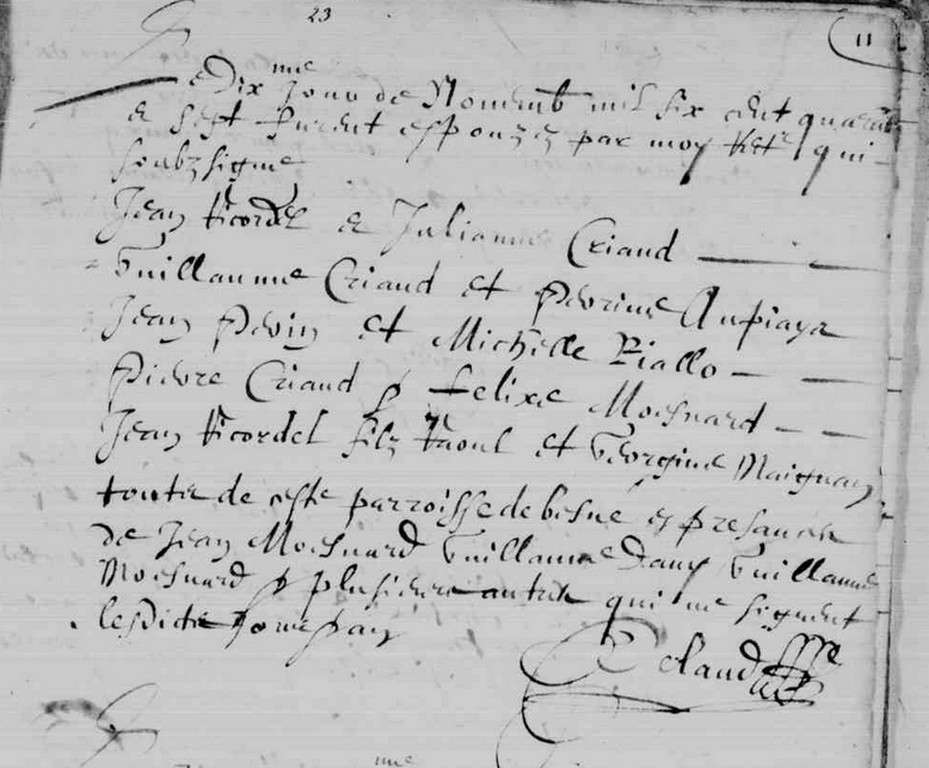 23
11
Le Dix me Jour de Novemb mil six cent quarate
et sept furent espouzez par moy Rectr qui
soubzsigne
Jean Ricordel et Julianne Criaud
Guillaume Criaud et Perrine Aupiays
Jean Pevin et Michelle Riallo
Pierre Criaud & Felixe Moesnard
Jean Ricordel filz Raoul et Georgine Maignan
touts de ceste parroisse de besne es presances
de Jean Moesnard Guillaume Dauy Guillaume
Moesnard & plusieurs autres qui ne signent
lesdicts jour an